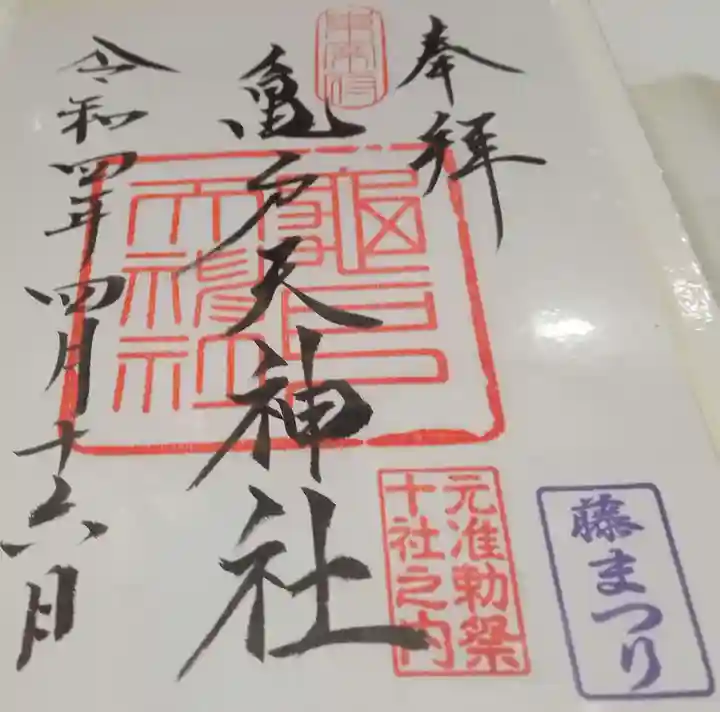 奉拝
亀戸天神社
令和四年四月十六日
亀戸
天神社
元准勅祭
十社之内
藤まつり